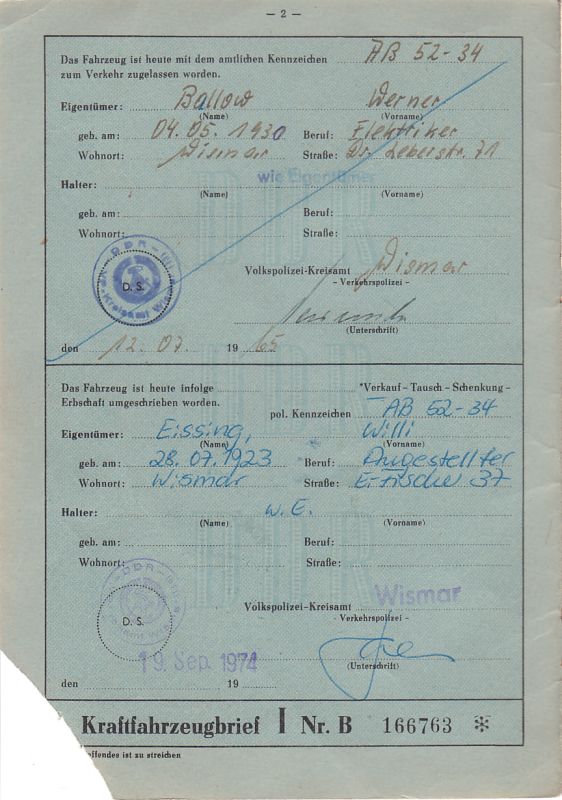 — 2 —
Das Fahrzeug ist heute mit dem amtlichen Kennzeichen AB 52-34
zum Verkehr zugelassen worden.
Eigentümer: Ballow Werner
(Name) (Vorname)
geb. am: 04.05.1930 Beruf: Elektriker
Wohnort: Wismar Straße: Dr. Leberstr. 71
Halter: wie Eigentümer
(Name) (Vorname)
geb. am: Beruf:
Wohnort: Straße:
D. S.
Volkspolizei-Kreisamt Wismar
– Verkehrspolizei –
(Unterschrift)
den 12.07. 19 65
Das Fahrzeug ist heute infolge *Verkauf – Tausch – Schenkung –
Erbschaft umgeschrieben worden.
pol. Kennzeichen AB 52-34
Eigentümer: Eissing, Willi
(Name) (Vorname)
geb. am: 28.07.1923 Beruf: Angestellter
Wohnort: Wismar Straße: 37
Halter: w. E.
(Name) (Vorname)
geb. am: Beruf:
Wohnort: Straße:
D. S.
Volkspolizei-Kreisamt Wismar
– Verkehrspolizei –
(Unterschrift)
19. Sep. 1974
den 19
Kraftfahrzeugbrief I Nr. B 166763 ✻
effendes ist zu streichen